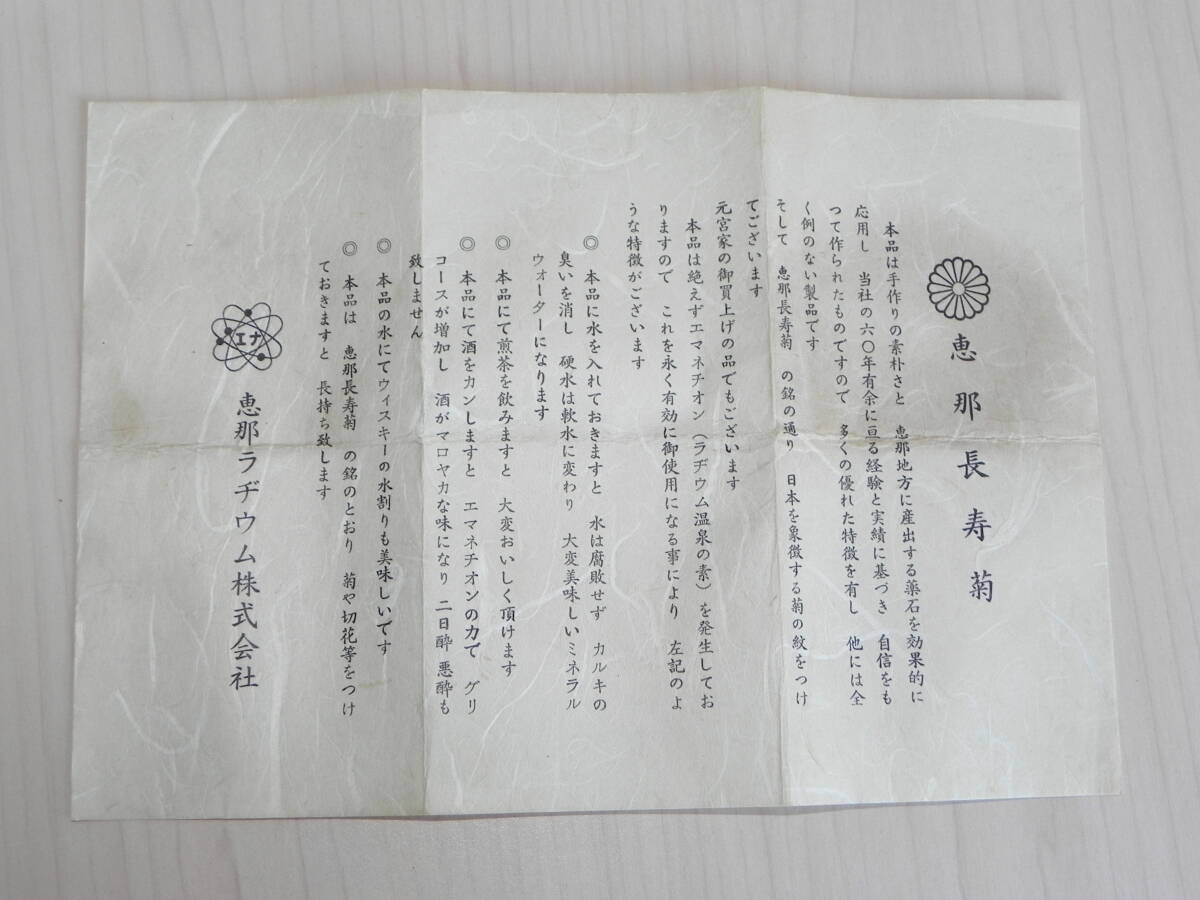 恵那長寿菊
本品は手作りの素朴さと　恵那地方に産出する薬石を効果的に
応用し　当社の六〇年有余に亘る経験と実績に基づき　自信をも
つて作られたものですので　多くの優れた特徴を有し　他には全
く例のない製品です
そして　恵那長寿菊　の銘の通り　日本を象徴する菊の紋をつけ
てございます
元宮家の御買上げの品でもございます
本品は絶えずエマネチオン（ラヂウム温泉の素）を発生してお
りますので　これを永く有効に御使用になる事により　左記のよ
うな特徴がございます
◎　本品に水を入れておきますと　水は腐敗せず　カルキの
臭いを消し　硬水は軟水に変わり　大変美味しいミネラル
ウォーターになります
◎　本品にて煎茶を飲みますと　大変おいしく頂けます
◎　本品にて酒をカンしますと　エマネチオンの力で　グリ
コースが増加し　酒がマロヤカな味になり　二日酔　悪酔も
致しません
◎　本品の水にてウィスキーの水割りも美味しいです
◎　本品は　恵那長寿菊　の銘のとおり　菊や切花等をつけ
ておきますと　長持ち致します
エナ
恵那ラヂウム株式会社